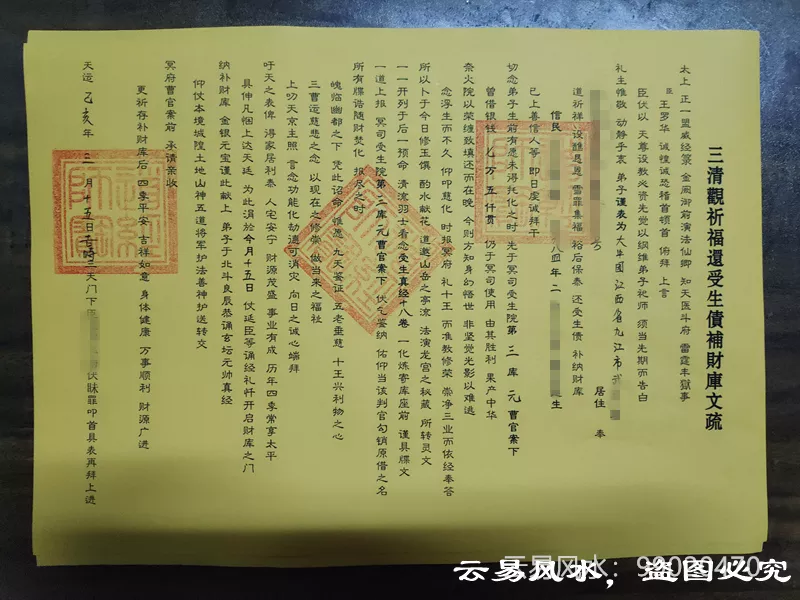 三清觀祈福還受生債補財庫文疏
太上 正一盟威经箓 金阙御前演法仙卿 知天医斗府 雷霆丰狱事
臣 王罗华 诚惶诚恐稽首顿首 俯拜 上言
臣伏以 天尊设教必资先觉以纲维弟子祀师 须当先期而告白
礼主惟敬 动静于衷 弟子谨表为大中国江西省九江市
居住 奉
道祈祥 设醮恳恩 雪罪集福 裕后保泰 还受生债 补纳财库
信民
八四年二
生
已上善信人等 即日虔诚拜干
切念弟子生前有愿未得托化之时 先于冥司受生院第 三 库 元 曹官案下
曾借银钱 九 万 五 仟贯 仍于冥司使用 由其胜利 果产中华
奈火院以荣缠致填还而在晚 今则方知身幻悟世 非坚觉光影以难逃
念浮生而不久 仰叩慈化 时报冥府 礼十王 而准教修荣 崇净三业而依经奉答
所以卜于今日修玉馔 酌水献花 道邀山岳之亭流 法演龙宫之秘藏 所转灵文
一一开列于后一预命 清流羽士看念受生真经十八卷 一化炼寄库座前 谨具牒文
一道上报 冥司受生院第 三 库 元 曹官案下 伏乞鉴纳 佑仰当该判官勾销原借之名
所有牒诰随财焚化 报尽之时
魄临幽都之下 凭此诏命 雖愿 九天鉴证 五老垂慈 十王兴利物之心
三曹运慈悲之念 以现在之修崇 做当来之福社
上叨天京主照 言念功能化劫遣可消灾 向日之诚心端拜
吁天之表俾 得家居利泰 人宅安宁 财源茂盛 事业有成 历年四季常享太平
具伸凡悃上达天廷 为此涓於今月十五日 仗延臣等诵经礼忏开启财库之门
纳补财库 金银元宝谨此献上 弟子于北斗良辰恭诵玄坛元帅真经
仰仗本境城隍土地山神五道将军护法善神护送转文
冥府曹官案前 承请亲收
更祈存补财库后 四季平安 吉祥如意 身体健康 万事顺利 财源广进
天运 乙亥年 二月十五日 三天门下臣
伏昧罪叩首具表再拜上进
云易风水：98009470
云易风水，盗图必究